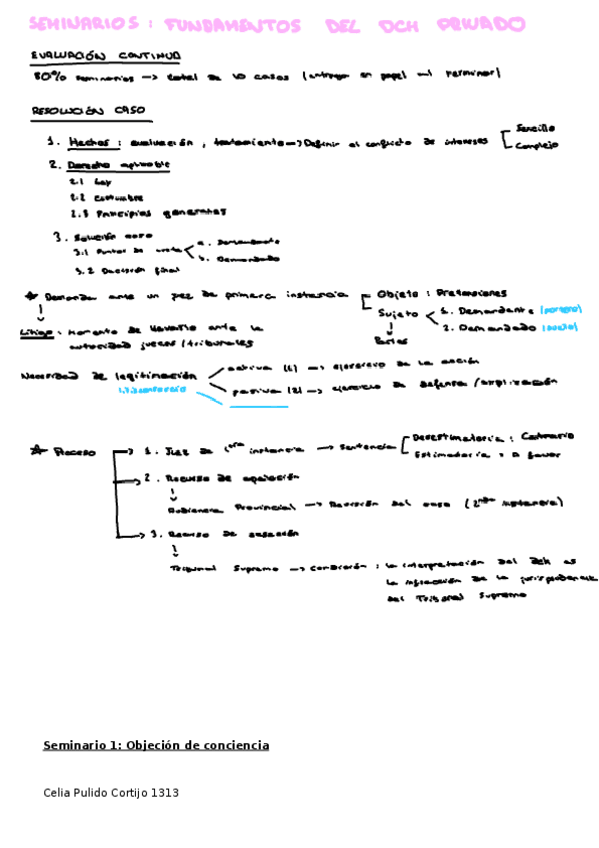 SEMINARIOS: FUNDAMENTOS DEL DCH PRIVADO
EVALUACIÓN CONTINUA
seminarios → total de 10 casos (entregar en papel al terminar)
RESOLUCIÓN CASO
1. Hechos: evaluación, tratamiento → Definir el conflicto de intereses
Sencillo
Complejo
2. Derecho aplicable
2.1 Ley
2.2 Costumbre
2.3 Principios generales
3. Solución caso
3.1 Puntos de vista
a. Demandante
b. Demandado
3.2 Decisión final
* Demanda ante un juez de primera instancia
Objeto: Pretensiones
Sujeto
1. Demandante
2. Demandado
Partes
Litigio: Momento de llevarlo ante la
autoridad jueces/tribunales
Necesidad de legitimación
activa → ejercicio de la acción
pasiva → ejercicio de defensa
* Proceso
1. Juez de 1era instancia → Sentencia
Desestimatoria: Contrario
Estimatoria: A favor
2. Recurso de apelación
Audiencia Provincial → Revisión del caso (2nda instancia)
3. Recurso de casación
Tribunal Supremo → : la interpretación del dch es
la infracción de la jurisprudencia
del Tribunal Supremo
Seminario 1: Objeción de conciencia
Celia Pulido Cortijo 1313